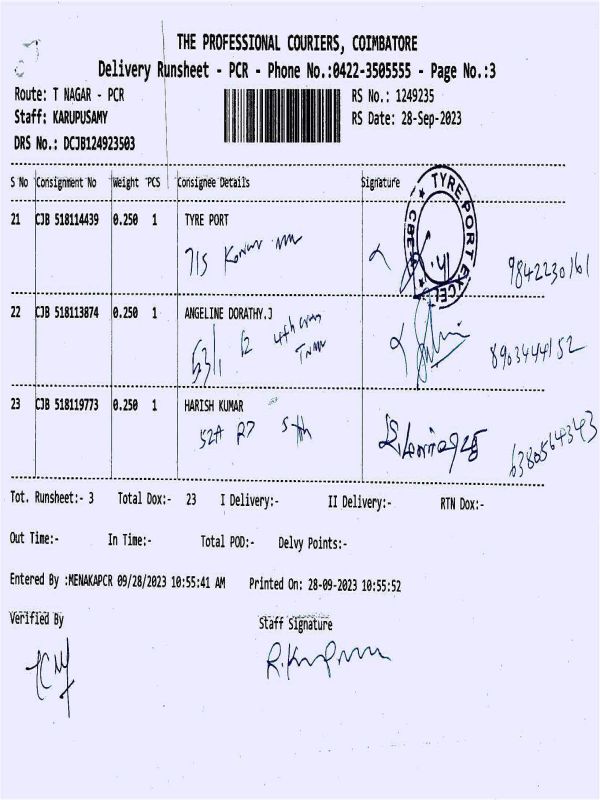 THE PROFESSIONAL COURIERS, COIMBATORE
Delivery Runsheet - PCR - Phone No.:0422-3505555 - Page No.:3
Route: T NAGAR - PCR
RS No.: 1249235
Staff: KARUPUSAMY
RS Date: 28-Sep-2023
DRS No.: DCJB124923503
S No Consignment No Weight PCS Consignee Details Signature
21 CJB 518114439 0.250 1 TYRE PORT
TYRE PORT EXCEL
CBE
715
9842230161
22 CJB 518113874 0.250 1 ANGELINE DORATHY.J
53/1 4th
8903444152
23 CJB 518119773 0.250 1 HARISH KUMAR
52A
6380564343
Tot. Runsheet:- 3 Total Dox:- 23 I Delivery:- II Delivery:- RTN Dox:-
Out Time:- In Time:- Total POD:- Delvy Points:-
Entered By :MENAKAPCR 09/28/2023 10:55:41 AM Printed On: 28-09-2023 10:55:52
Verified By Staff Signature